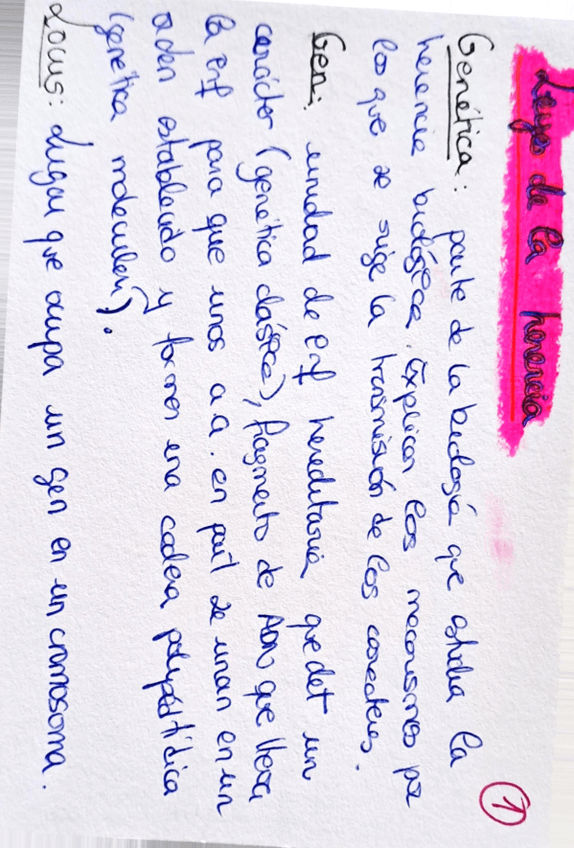 Leyes de la herencia
①
Genética: parte de la biología que estudia la
herencia biológica. Explican los mecanismos por
los que se rige la transmisión de los caracteres.
Gen: unidad de inf hereditaria que det un
carácter (genética clásica), fragmento de ADN que lleva
la inf para que unos a.a. en part se unan en un
orden establecido y formen una cadena polipéptidica
(genética molecular).
Locus: Lugar que ocupa un gen en un cromosoma.